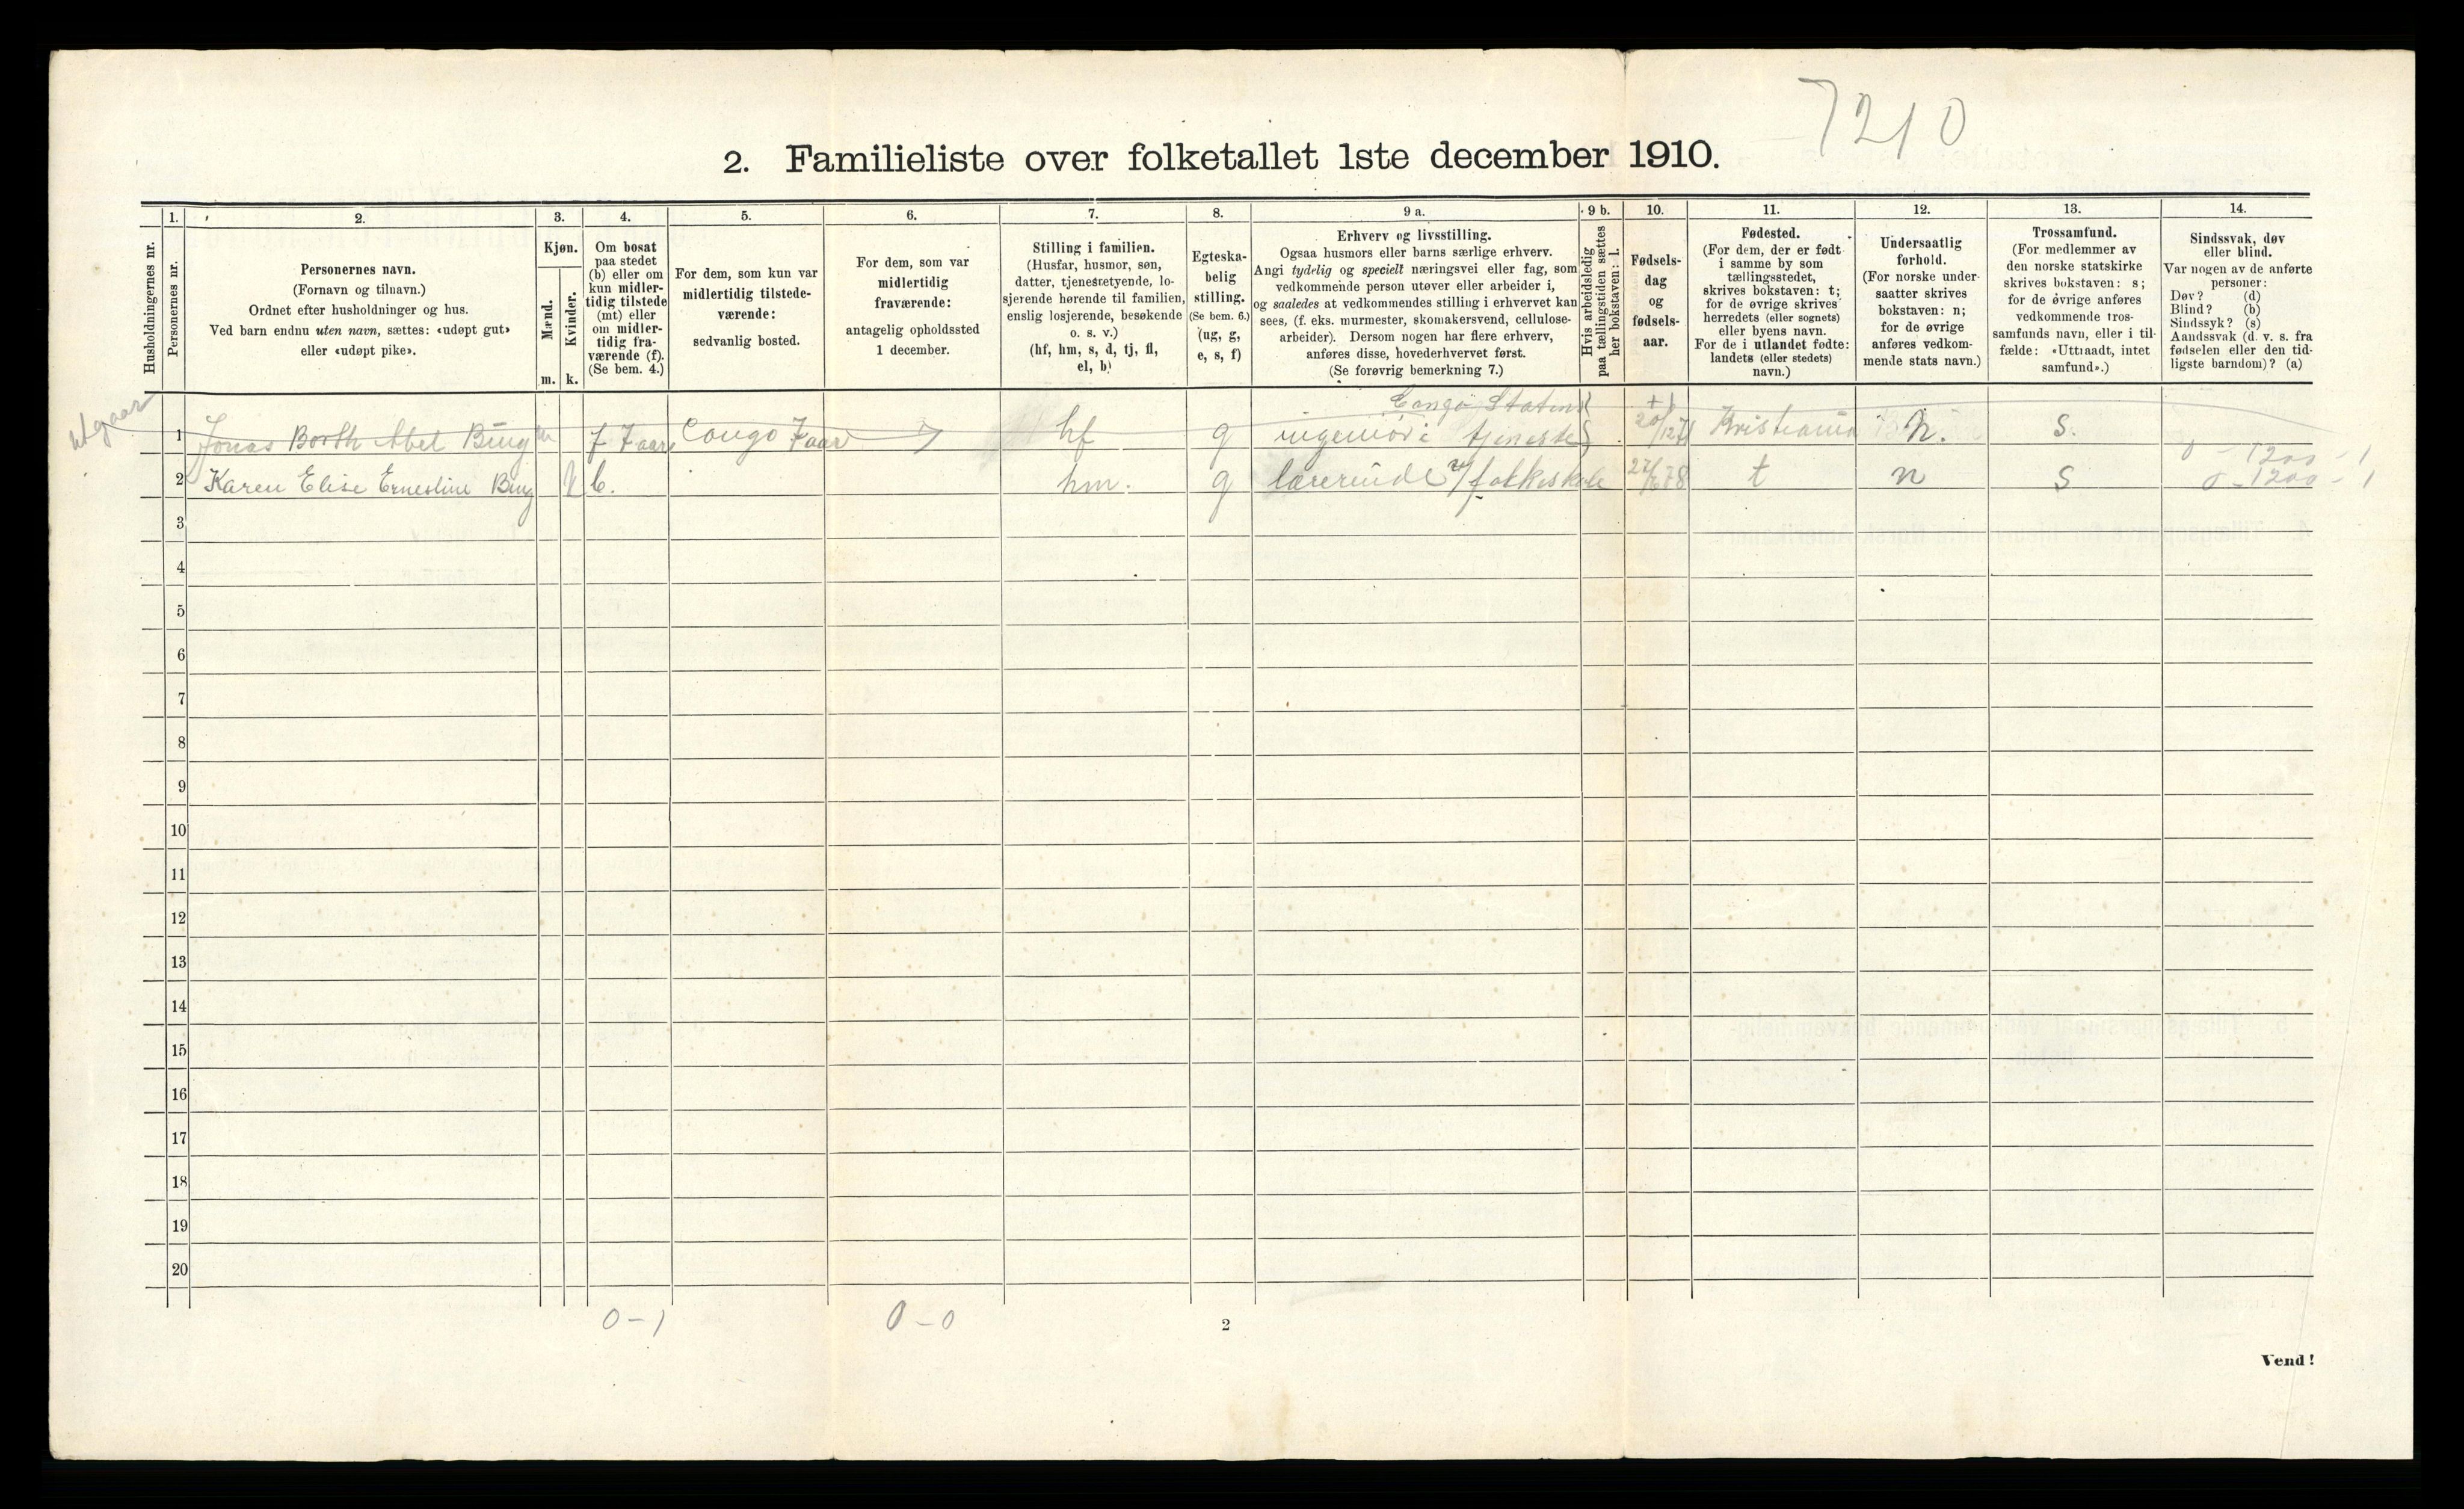 7210
2. Familieliste over folketallet 1ste december 1910.
Husholdningernes nr.
1.
Personernes nr.
2.
Personernes navn.
(Fornavn og tilnavn.)
Ordnet efter husholdninger og hus.
Ved barn endnu uten navn, sættes: «udøpt gut»
eller «udøpt pike».
3.
Kjøn.
Mænd.
Kvinder.
m. k.
4.
Om bosat
paa stedet
(b) eller om
kun midler-
tidig tilstede
(mt) eller
om midler-
tidig fra-
værende (f).
(Se bem. 4.)
5.
For dem, som kun var
midlertidig tilstede-
værende:
sedvanlig bosted.
6.
For dem, som var
midlertidig
fraværende:
antagelig opholdssted
1 december.
7.
Stilling i familien.
(Husfar, husmor, søn,
datter, tjenestetyende, lo-
sjerende hørende til familien,
enslig losjerende, besøkende
o. s. v.)
(hf, hm, s, d, tj, fl,
el, b)
8.
Egteska-
belig
stilling.
(Se bem. 6.)
(ug, g,
e, s, f)
9 a.
Erhverv og livsstilling.
Ogsaa husmors eller barns særlige erhverv.
Angi tydelig og specielt næringsvei eller fag, som
vedkommende person utøver eller arbeider i,
og saaledes at vedkommendes stilling i erhvervet kan
sees, (f. eks. murmester, skomakersvend, cellulose-
arbeider). Dersom nogen har flere erhverv,
anføres disse, hovederhvervet først.
(Se forøvrig bemerkning 7.)
9 b.
Hvis arbeidsledig
paa tællingstiden sættes
her bokstaven: l.
10.
Fødsels-
dag
og
fødsels-
aar.
11.
Fødested.
(For dem, der er født
i samme by som
tællingsstedet,
skrives bokstaven: t;
for de øvrige skrives
herredets (eller sognets)
eller byens navn.
For de i utlandet fødte:
landets (eller stedets)
navn.)
12.
Undersaatlig
forhold.
(For norske under-
saatter skrives
bokstaven: n;
for de øvrige
anføres vedkom-
mende stats navn.)
13.
Trossamfund.
(For medlemmer av
den norske statskirke
skrives bokstaven: s;
for de øvrige anføres
vedkommende tros-
samfunds navn, eller i til-
fælde: «Uttraadt, intet
samfund».)
14.
Sindssvak, døv
eller blind.
Var nogen av de anførte
personer:
Døv? (d)
Blind? (b)
Sindssyk? (s)
Aandssvak (d. v. s. fra
fødselen eller den tid-
ligste barndom)? (a)
utgaar
1 Jonas Borth Abel Bing m f 7 aar Congo 7 aar hf g ingeniør i Congo Statens tjeneste Kristiania n. s.
0 - 1200 - 1
2 Karen Elise Ernestine Bing k b. hm. g lærerinde v/ folkeskole t n s 0 - 1200 - 1
3
4
5
6
7
8
9
10
11
12
13
14
15
16
17
18
19
20
0 - 1 0 - 0
2
Vend!